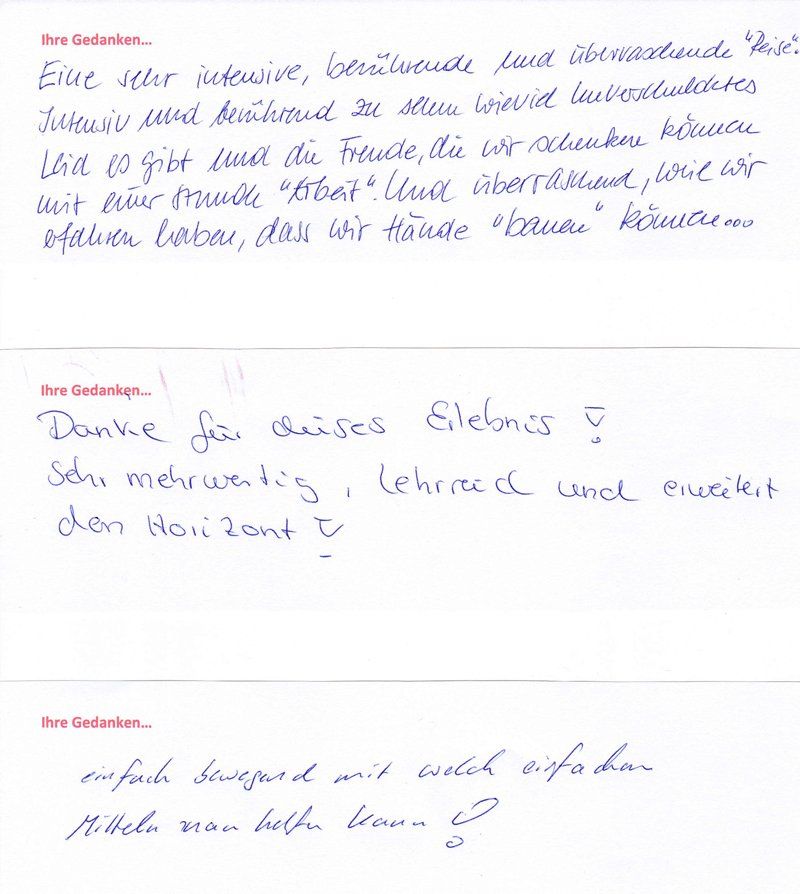 Ihre Gedanken...
Eine sehr intensive, berührende und überraschende "Reise".
Intensiv und berührend zu sehen wieviel unverschuldetes
Leid es gibt und die Freude, die wir schenken können
mit einer Stunde "Arbeit". Und überraschend, weil wir
erfahren haben, dass wir Hände "bauen" können...
Ihre Gedanken...
Danke für dieses Erlebnis!
Sehr mehrwertig, lehrreich und erweitert
den Horizont!
Ihre Gedanken...
einfach bewegend mit welch einfachen
Mitteln man helfen kann!